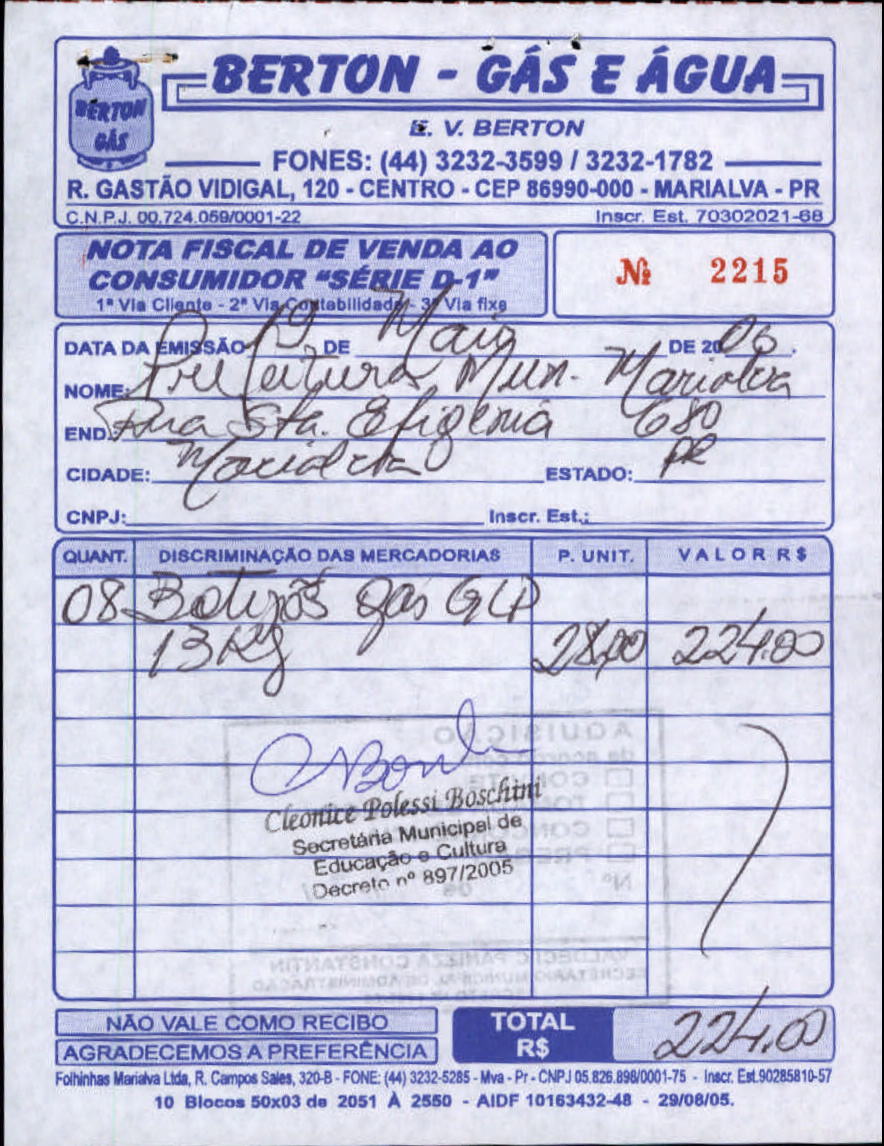 BERTON GÁS
BERTON - GÁS E ÁGUA
E. V. BERTON
FONES: (44) 3232-3599 / 3232-1782
R. GASTÃO VIDIGAL, 120 - CENTRO - CEP 86990-000 - MARIALVA - PR
C.N.P.J. 00.724.059/0001-22 Inscr. Est. 70302021-68
NOTA FISCAL DE VENDA AO
CONSUMIDOR "SÉRIE D-1"
1ª Via Cliente - 2ª Via Contabilidade - 3ª Via fixa
Nº 2215
DATA DA EMISSÃO 19 DE Maio DE 2006.
NOME: Prefeitura Mun. Marialva
END. Rua Sta. Efigenia 680
CIDADE: Marialva ESTADO: PR
CNPJ: Inscr. Est.:
QUANT. DISCRIMINAÇÃO DAS MERCADORIAS P. UNIT. VALOR R$
08 Botijõs gás GLP
13 Kg 28,00 224.00
AQUISIÇÃO
de acordo com
CONVITE
CONCO
Nº
Cleonice Polessi Boschini
Secretária Municipal de
Educação e Cultura
Decreto nº 897/2005
VALDECI C PANIZZA CONSTANTIN
SECRETARIO MUNICIPAL DE ADMINISTRAÇÃO
NÃO VALE COMO RECIBO
AGRADECEMOS A PREFERÊNCIA
TOTAL R$ 224.00
Folhinhas Marialva Ltda, R. Campos Sales, 320-B - FONE: (44) 3232-5285 - Mva - Pr - CNPJ 05.826.898/0001-75 - Inscr. Est.90285810-57
10 Blocos 50x03 de 2051 À 2550 - AIDF 10163432-48 - 29/08/05.